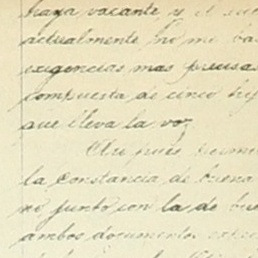 haya vacante y el sue
actualmente no me bas
exigencias mas precisas
compuesta de cinco hij
que lleva la voz
Asi pues permi
la constancia de buena
ne junto con la de bue
ambos documentos espe